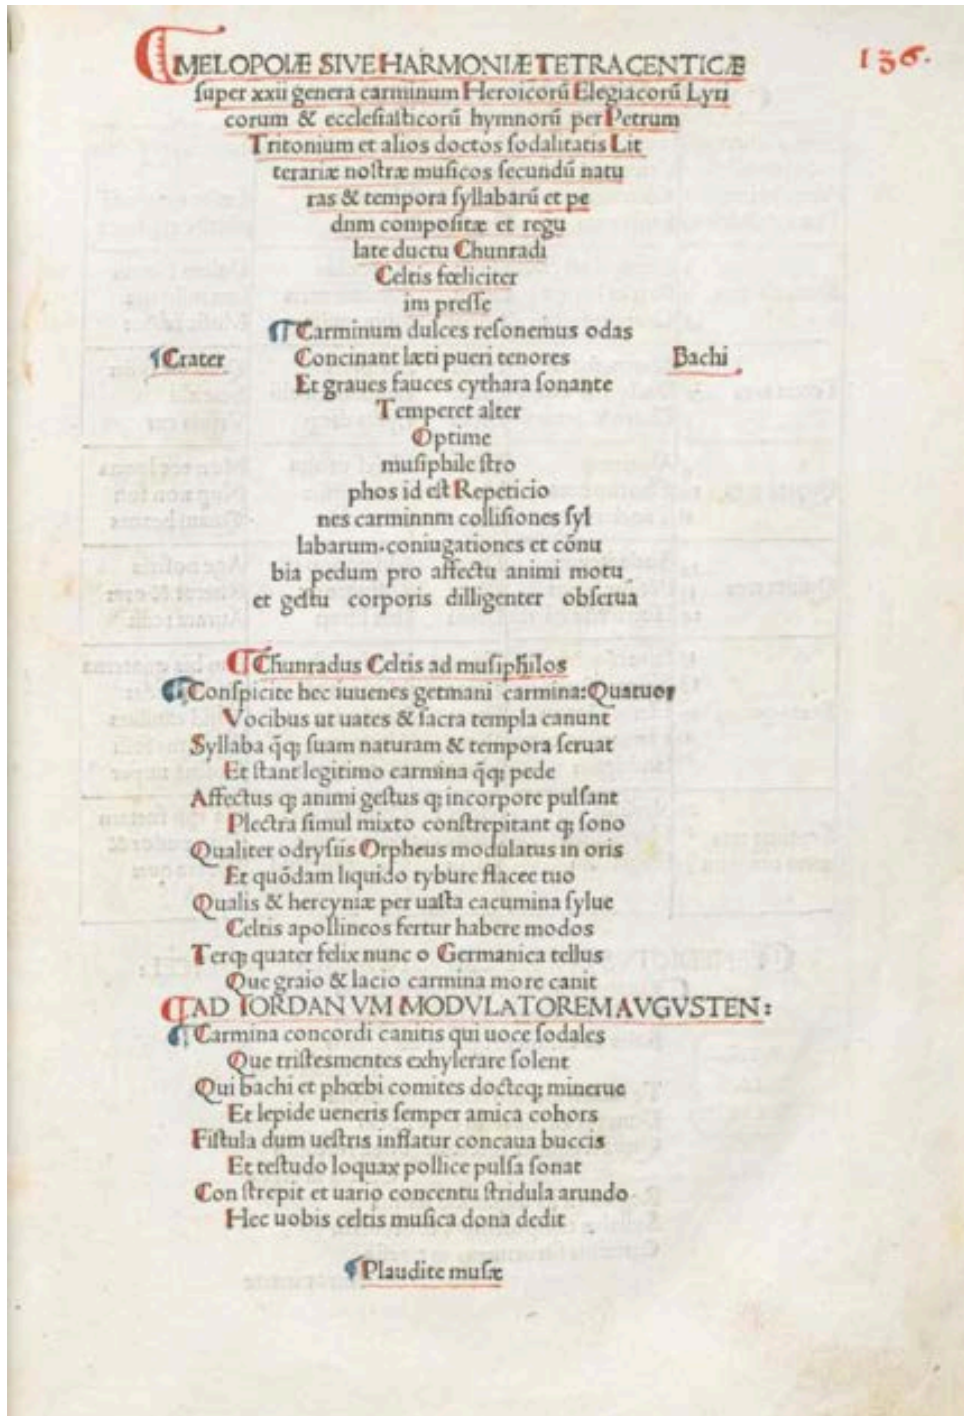 MELOPOIÆ SIVE HARMONIÆ TETRACENTICÆ
136.
super xxii genera carminum Heroicorũ Elegiacorũ Lyri
corum & ecclesiasticorũ hymnorũ per Petrum
Tritonium et alios doctos sodalitatis Lit
terariæ nostræ musicos secundũ natu
ras & tempora syllabarũ et pe
dnm compositæ et regu
late ductu Chunradi
Celtis fœliciter
im presse
¶ Carminum dulces resonemus odas
¶ Crater Concinant læti pueri tenores Bachi
Et graues fauces cythara sonante
Temperet alter
Optime
musiphile stro
phos id est Repeticio
nes carminnm collisiones syl
labarum. coniugationes et cõnu
bia pedum pro affectu animi motu
et gestu corporis dilligenter obserua
Chunradus Celtis ad musiphilos
¶ Conspicite hec iuuenes germani carmina: Quatuor
Vocibus ut uates & sacra templa canunt
Syllaba q̃q; suam naturam & tempora seruat
Et stant legitimo carmina q̃q; pede
Affectus q; animi gestus q; incorpore pulsant
Plectra simul mixto constrepitant q; sono
Qualiter odrysiis Orpheus modulatus in oris
Et quõdam liquido tybure flacce tuo
Qualis & hercyniæ per uasta cacumina sylue
Celtis apollineos fertur habere modos
Terq; quater felix nunc o Germanica tellus
Que graio & lacio carmina more canit
AD IORDAN VM MODVLATOREM AVGVSTEN:
¶ Carmina concordi canitis qui uoce sodales
Que tristesmentes exhylerare solent
Qui bachi et phœbi comites docteq; minerue
Et lepide ueneris semper amica cohors
Fistula dum uestris inflatur concaua buccis
Et testudo loquax pollice pulsa sonat
Con strepit et uario concentu stridula arundo
Hec uobis celtis musica dona dedit
¶ Plaudite musæ